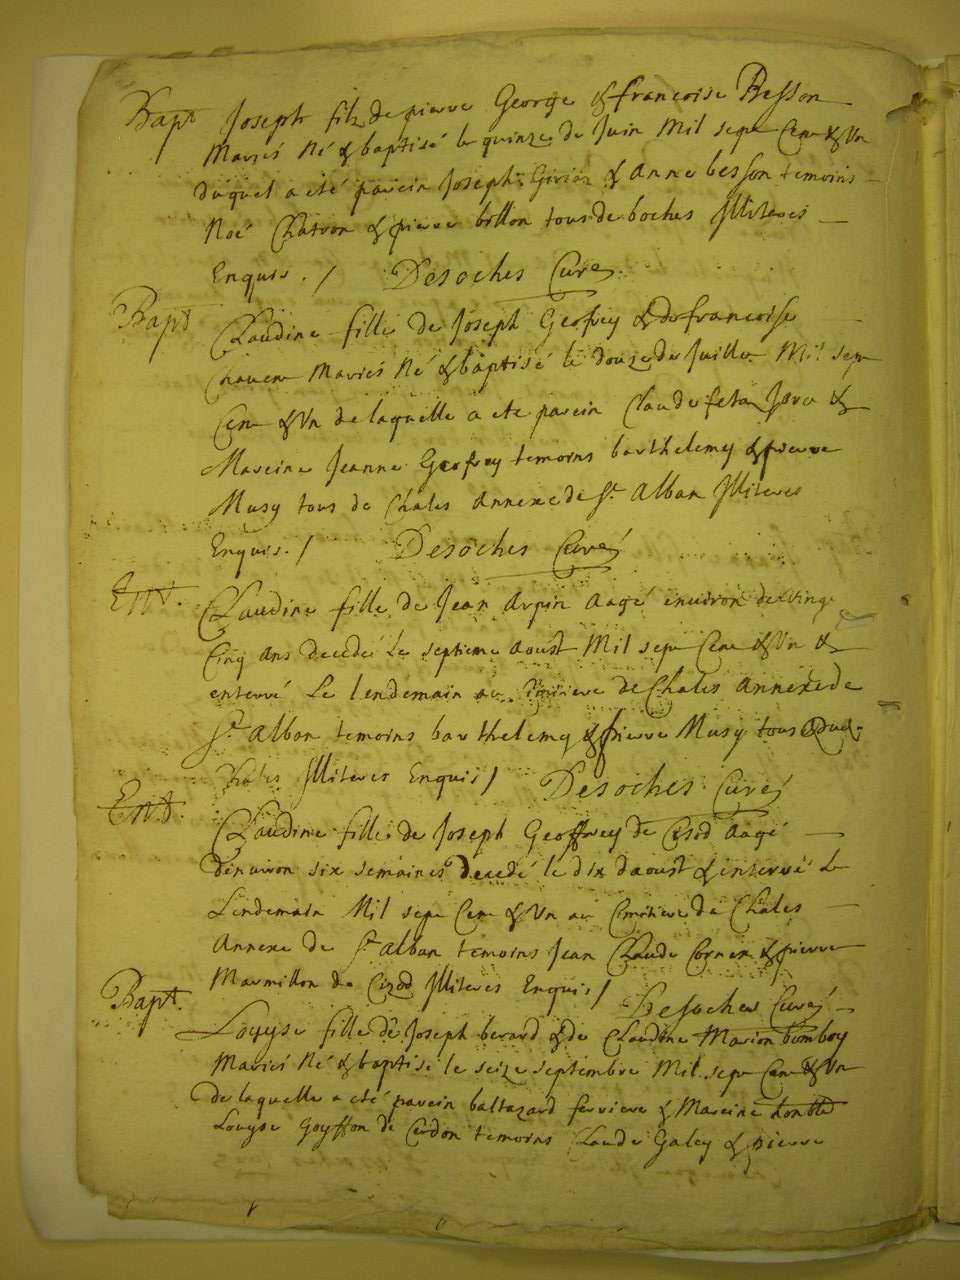 Bapt Joseph filz de pierre George & francoise Besson
Mariés Né & baptisé le quinze de Juin Mil sept Cent & Un
duquel a eté parein Joseph Girier & Anne besson temoins
Noé Chatron & pierre bollon tous de boches Illiteres
Enquis. / Desoches Curé
Bapt Claudine fille de Joseph Geofrey & de francoise
Mariés Né & baptisé le douze de Juillet Mil sept
Cent & Un de laquelle a ete parein Claude &
Mareine Jeanne Geofrey temoins barthelemy & pierre
Musy tous de Chales Annexe de St Alban Illiteres
Enquis. / Desoches Curé
Ent. Claudine fille de Jean Arpin Aagé environ de vingt
Cinq Ans decedé Le septieme Aoust Mil sept Cent & Un &
enterré Le lendemain au Cimitiere de Chales Annexe de
St Alban temoins barthelemy & pierre Musy tous dud.
Chales Illiteres Enquis / Desoches Curé
Ent. Claudine fille de Joseph Geoffrey de Cisod Aagé
denviron six semaines Decedé le dix daoust & enterré Le
Lendemain Mil sept Cent & Un au Cimitiere de Chales
Annexe de St Alban temoins Jean Claude Cornex & pierre
Marmillon de Cizod Illiteres Enquis / Desoches Curé
Bapt. Louyse fille de Joseph berard & de Claudine Marion bomboy
Mariés Né & baptisé le seize septembre Mil sept Cent & Un
de laquelle a eté parein baltazard ferriere & Mareine
Louyse Goyffon de Cerdon temoins Claude Galey & pierre